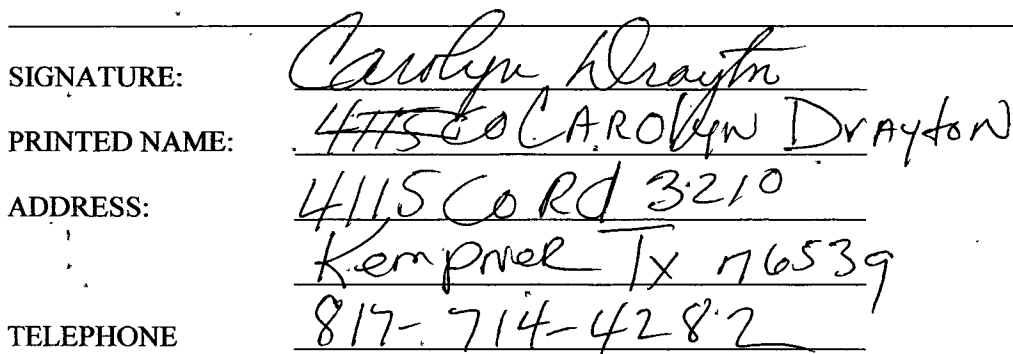 SIGNATURE: Carolyn Drayton
PRINTED NAME: 4115 CO CAROLYN DrAytoN
ADDRESS: 4115 Co Rd 3210
Kempner Tx 76539
TELEPHONE 817-714-4282